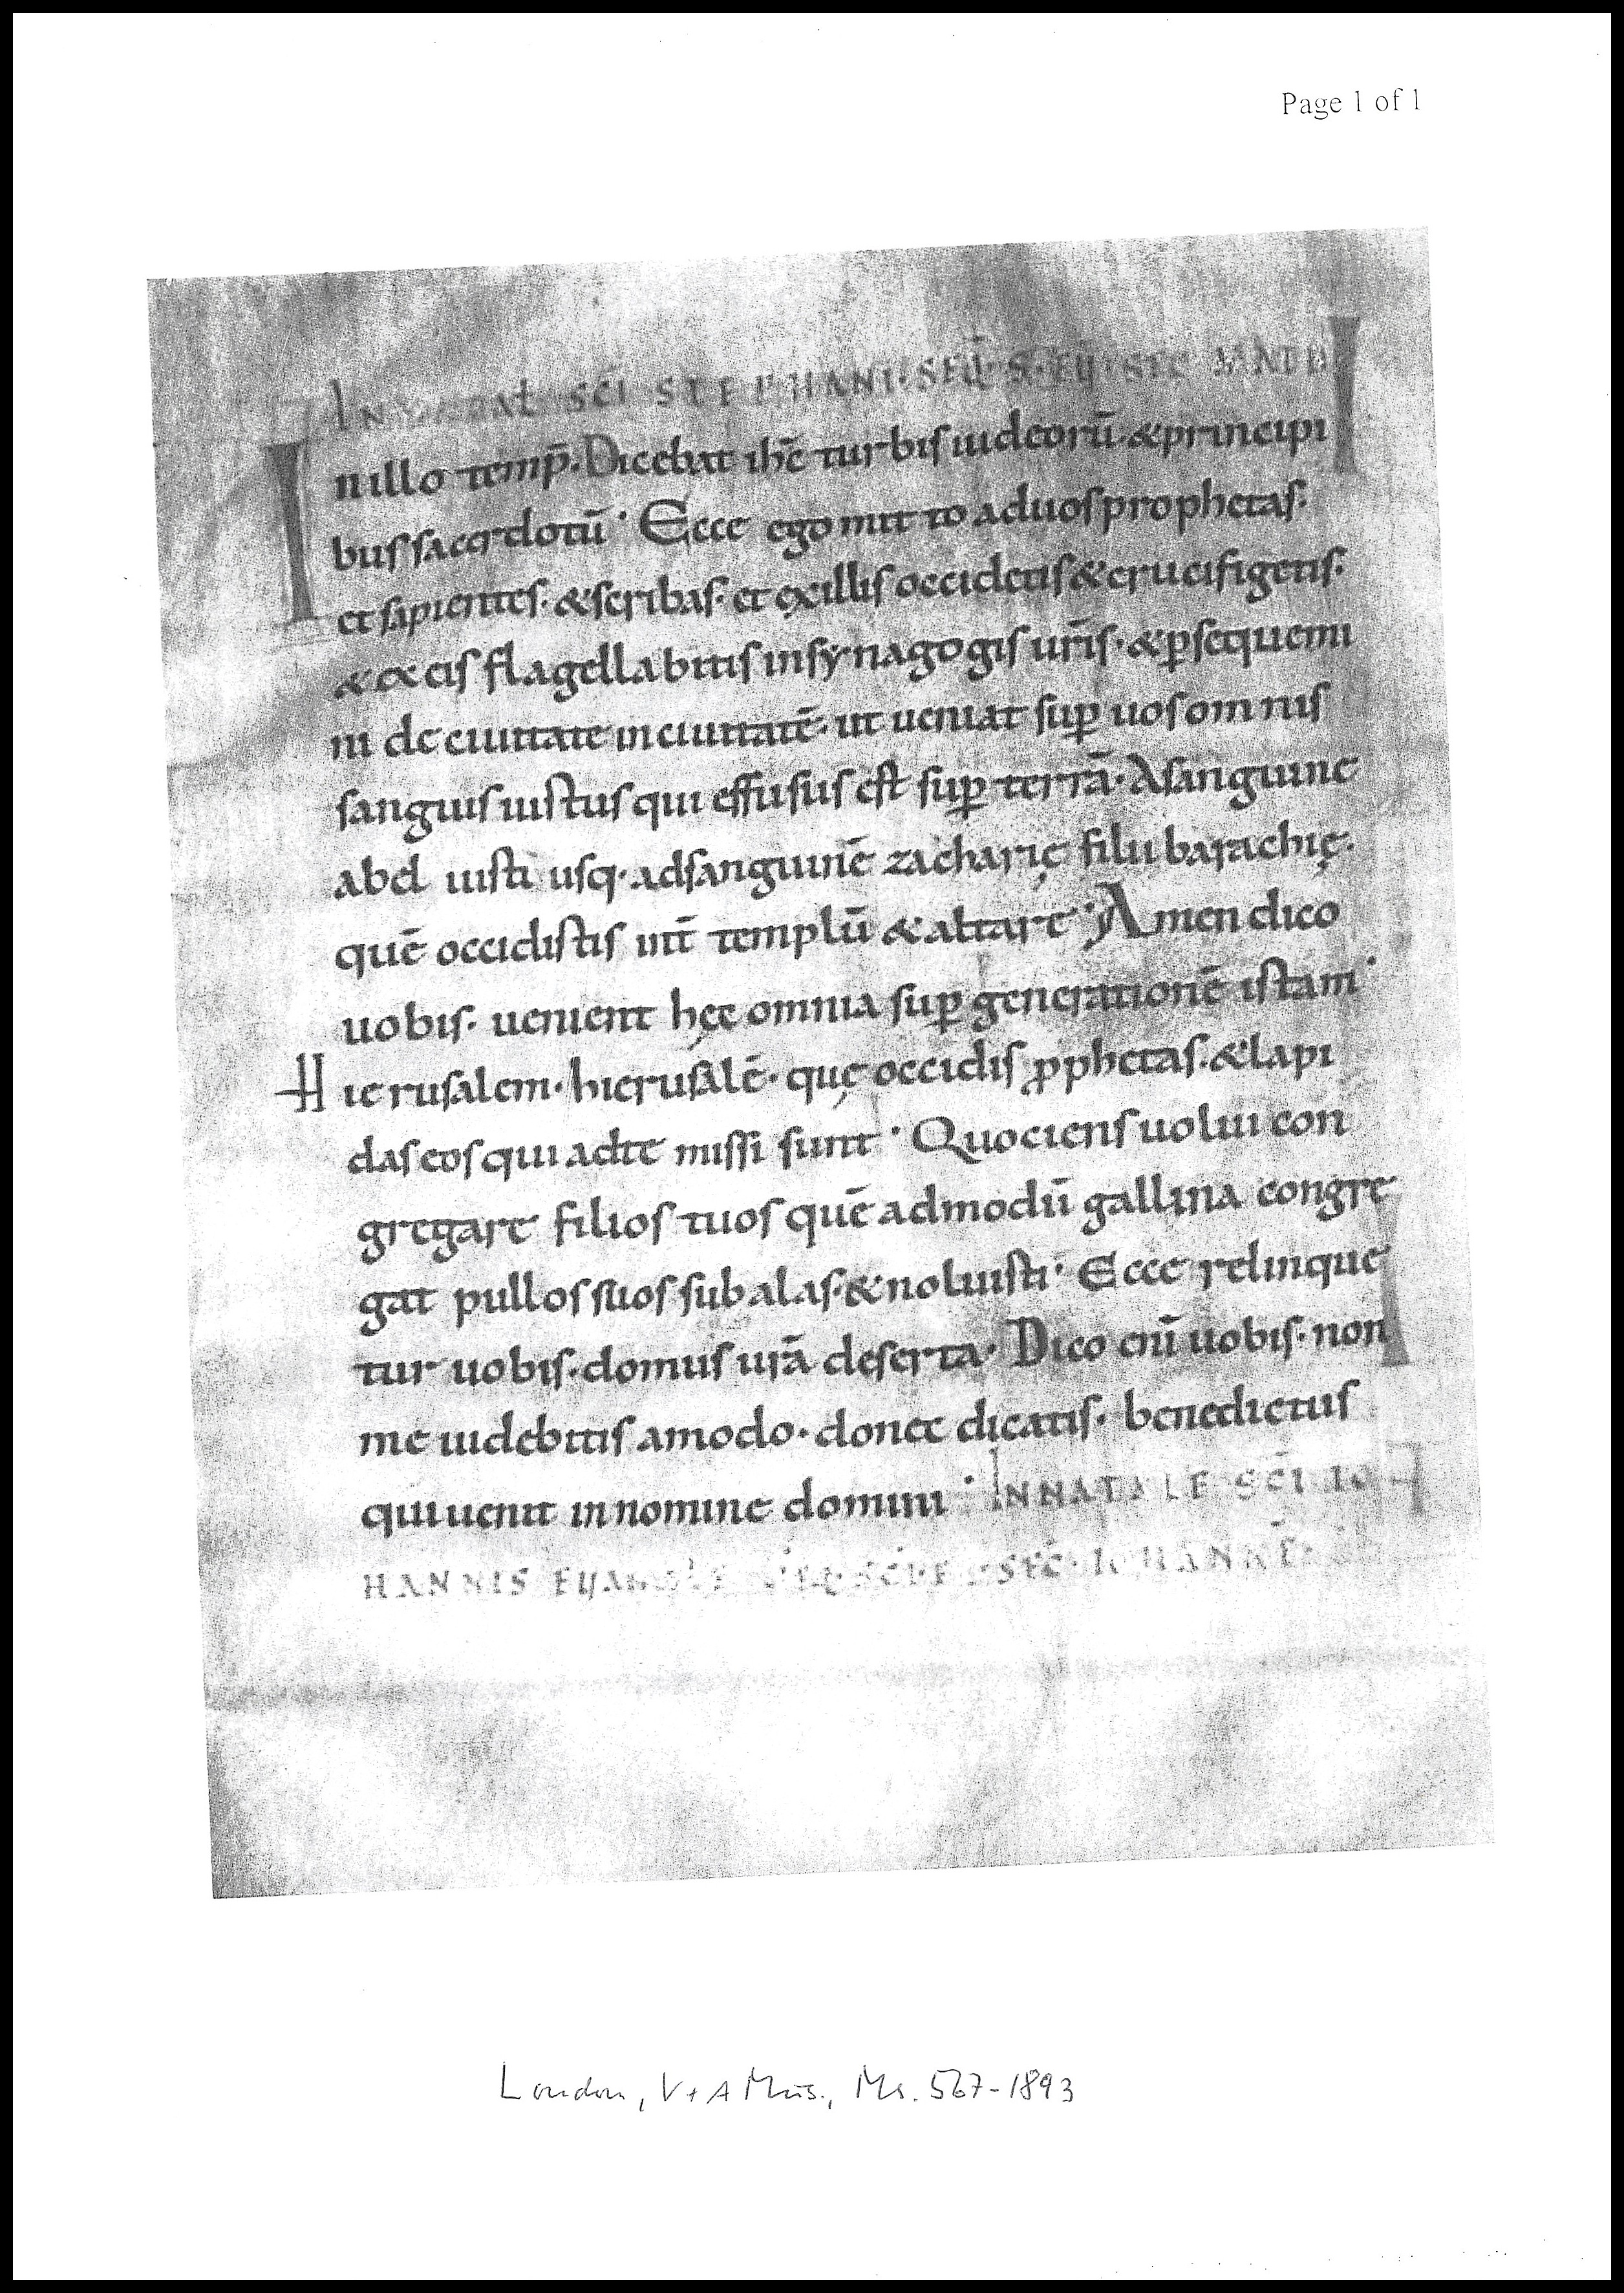 Page 1 of 1
IN NAT SCI STEPHANI·SEQ̄·S·EŲ·SEC MATH
Inillo temp̄·Dicebat ihc̄ turbis iudeorū·&principi
bus sacerdotū· Ecce ego mitto aduos prophetas·
et sapientes·&scribas· et exillis occidetis&crucifigetis·
&exeis flagellabitis insynagogis ur̄is·&ꝑsequemi
ni de ciuitate inciuitatē· ut ueniat suꝑ uos omnis
sanguis iustus qui effusus est suꝑ terrā·Asanguine
abel iusti usq·adsanguinē zacharię filii barachię·
quē occidistis int̄ templū &altare· Amen dico
uobis· uenient hęc omnia suꝑ generationē istam·
Hierusalem·hierusalē· quę occidis ꝓphetas·&lapi
das eos qui adte missi sunt· Quociens uolui con
gregare filios tuos quē admodū gallina congre
gat pullos suos sub alas·&noluisti· Ecce relinque
tur uobis·domus ur̄a deserta· Dico eni̅ uobis·non
me uidebitis amodo·donec dicatis· benedictus
qui uenit innomine domini· INNATALE SCI IO
HANNIS SEC·IOHANNĒ
London, V+A Mus., Ms. 567-1893